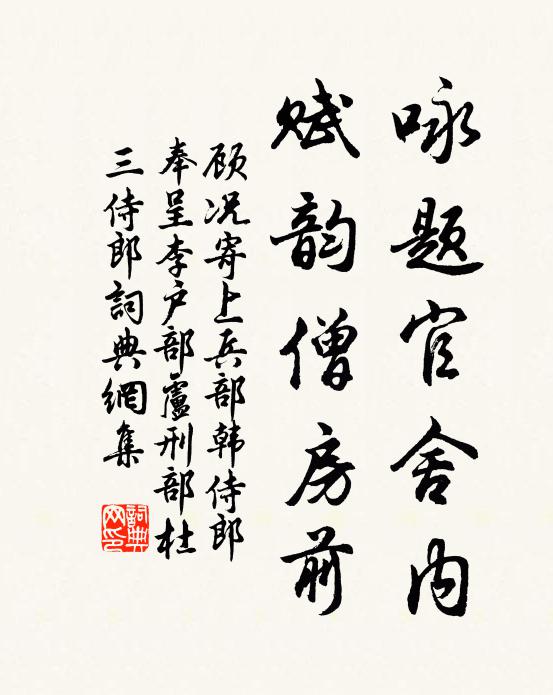 咏题官舍内
赋韵僧房前
顾况寄上兵部韩侍郎
奉呈李户部卢刑部杜
三侍郎詞典網集
詞典网印